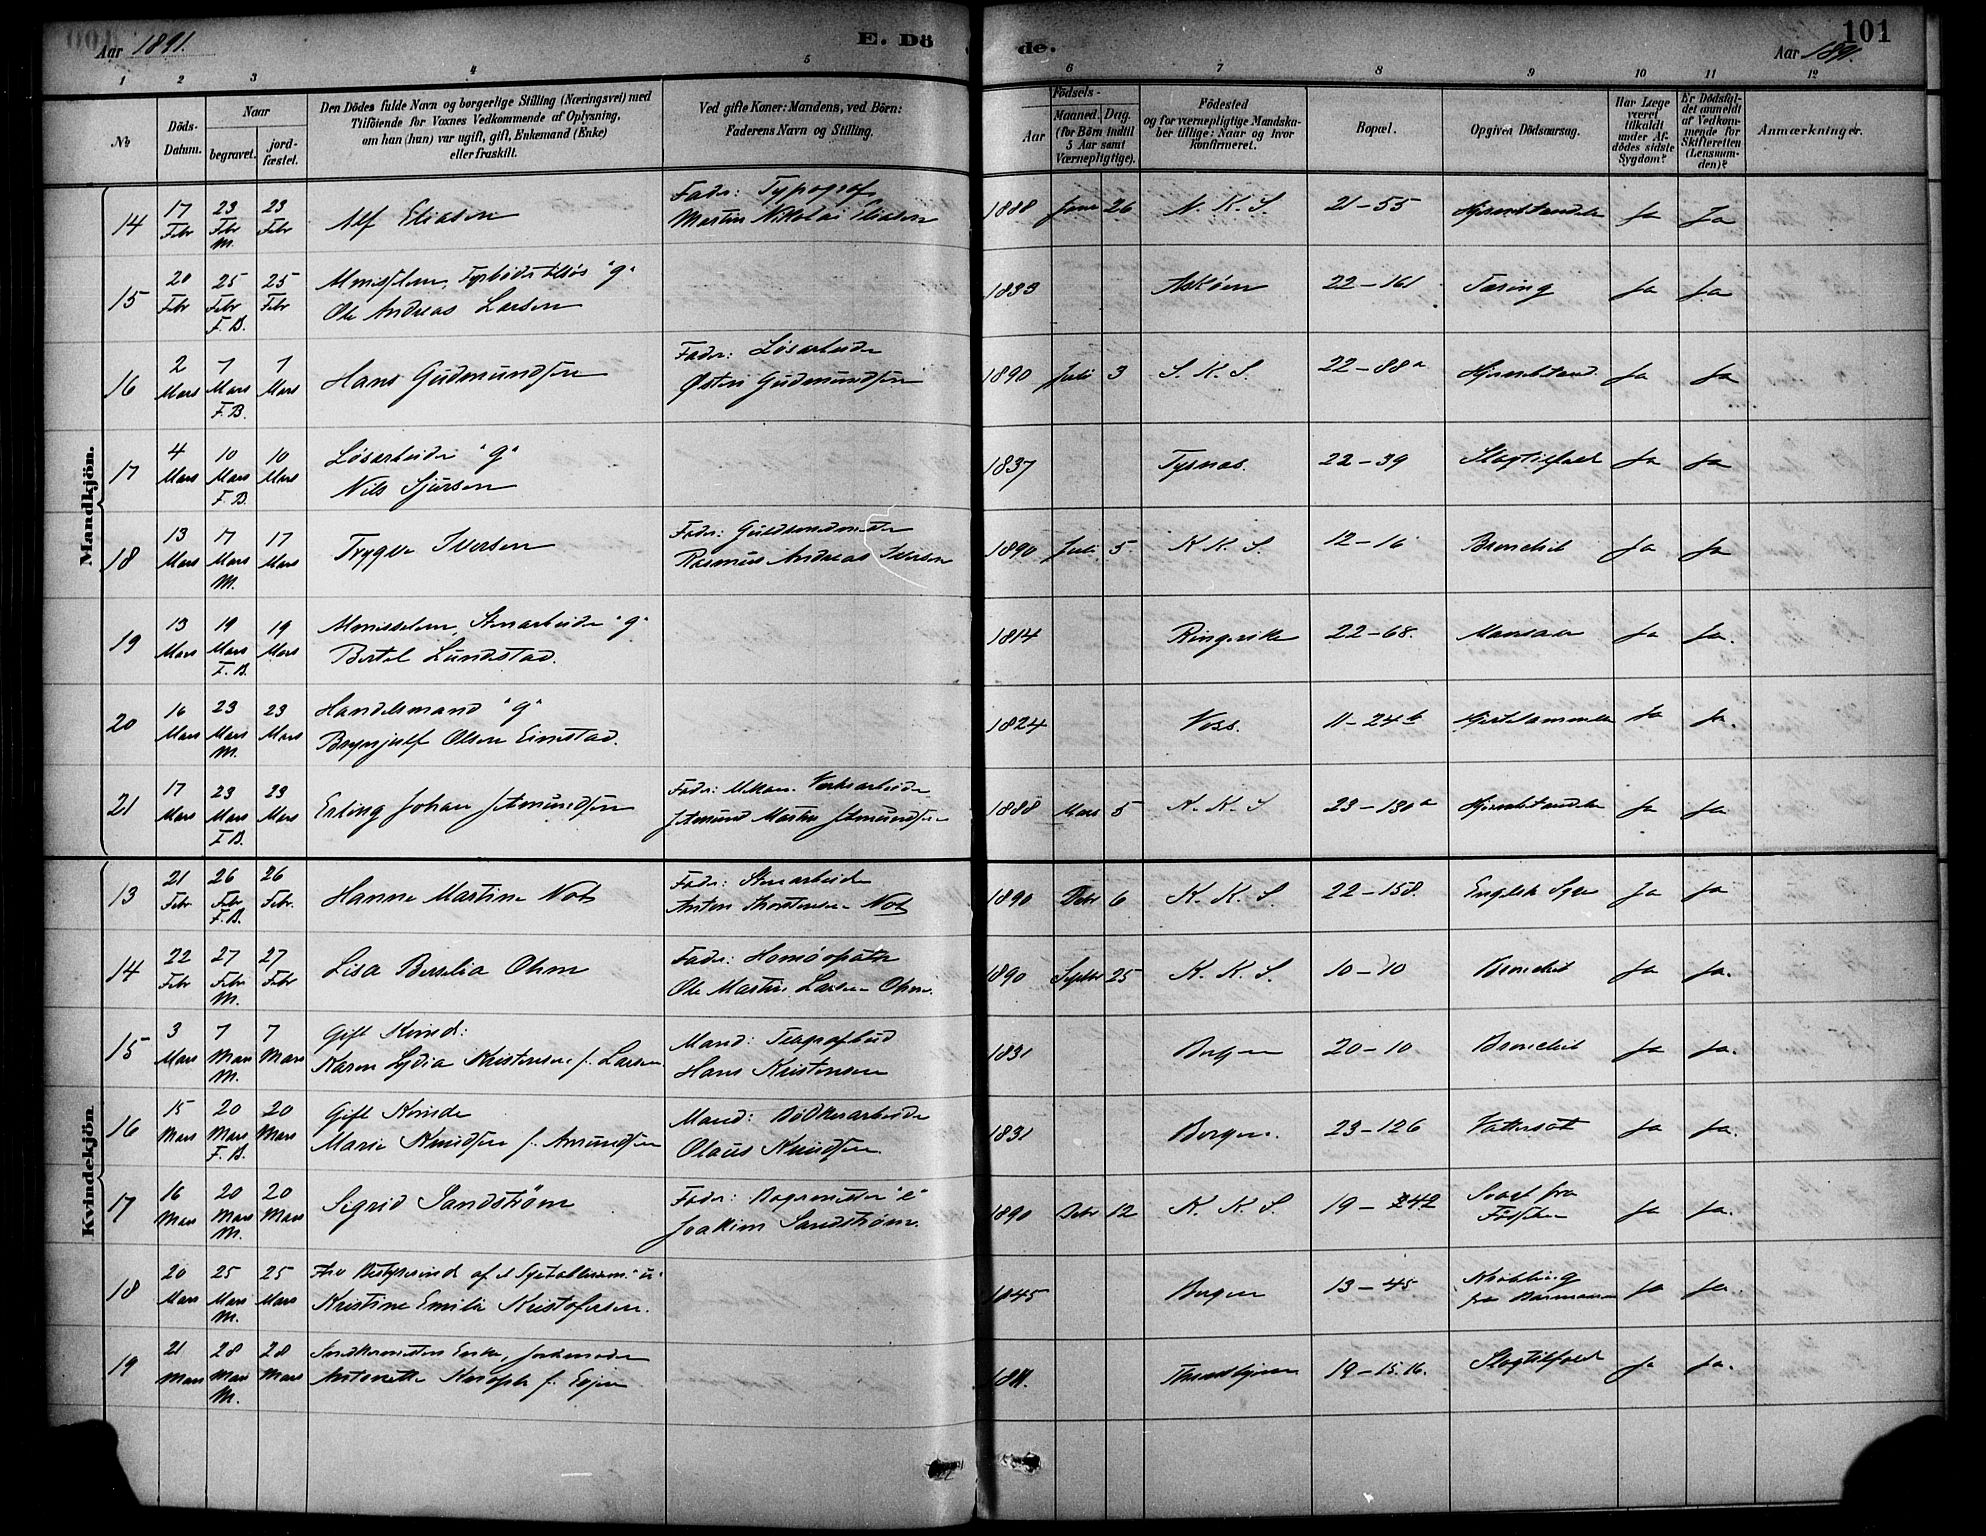 Aar 1891.
E. Dö
de.
101
Aar 1891.
1 2 3 4 5 6 7 8 9 10 11 12
No
Döds-Datum.
Naar
begravet.
jord-fæstet.
Den Dödes fulde Navn og borgerlige Stilling (Næringsvei) med
Tilföiende for Voxnes Vedkommende af Oplysning,
om han (hun) var ugift, gift, Enkemand (Enke)
eller fraskilt.
Ved gifte Koner: Mandens, ved Börn:
Faderens Navn og Stilling.
Födsels-
Aar
Maaned. Dag.
(for Börn indtil
5 Aar samt
Værnepligtige).
Födested
og for værnepligtige Mandska-
ber tillige: Naar og hvor
konfirmeret.
Bopæl.
Opgiven Dödsaarsag.
Har Læge
været
tilkaldt
under Af-
dödes sidste
Sygdom?
Er Dödsfal-
det anmeldt
af Vedkom-
mende for
Skifteretten
(Lensman-
den)?
Anmærkninger.
Mandkjön.
14 17 Febr 23 Febr M. 23 Febr Alf Eliasen Fader: Typograf Martin Nikolai Eliasen 1888 26 N. K. S. 21-55 Ja Ja
15 20 Febr 25 Febr F.B. 25 Febr Ole Andreas Larsen "g" 1833 Askøen 22-161 Tæring Ja Ja
16 2 Mars 7 Mars F.B. 7 Mars Hans Gudmundsen Fader: Løsarbeider Østen Gudmundsen 1890 Juli 3 S. K. S. 22-88a Ja Ja
17 4 Mars 10 Mars F.B. 10 Mars Løsarbeider "g" Nils Sjursen 1837 Tysnæs. 22-39 Slagtilfæld Ja Ja
18 13 Mars 17 Mars M. 17 Mars Trygve Iversen Fader: Guldsmedmester Rasmus Andreas Iversen 1890 Juli 5 K. K. S. 12-16 Bronchit Ja Ja
19 13 Mars 19 Mars F.B. 19 Mars Stenarbeider "g" Bertel Lundestad. 1814 Ringerike 22-68. Ja Ja.
20 16 Mars 23 Mars M. 23 Mars Handelsmand "g" Brynjulf Olsen Eimstad. 1824 Voss. 11-24b Ja Ja.
21 17 Mars 23 Mars F.B. 23 Mars Erling Johan Fader: Mekan. Verksarbeider 1888 Mars 5 N. K. S 23-130a Ja Ja
Kvindekjön.
13 21 Febr 26 Febr F.B. 26 Febr. Hanne Martine Fader: Stenarbeider Anton 1890 Debr 6 K. K. S. 22-158. Engelsk Syge Ja Ja
14 22 Febr 27 Febr M. 27 Febr Lisa Ohm Fader: Homöopath Ole Martin Larsen Ohm. 1890 Septbr 25 K. K. S. 10-10 Bronchit Ja Ja.
15 3 Mars 7 Mars M. 7 Mars Gift Kvinde: Karen Lydia Kristensen f. Larsen Mand: Hans Kristensen 1831 Bergen 20-10 Bronchit Ja Ja.
16 15 Mars 20 Mars F.B. 20 Mars Gift Kvinde Marie Knudsen f. Amundsen Mand: Bødkerarbeider Olaus Knudsen. 1831 Bergen. 23-126 Vattersot Ja Ja.
17 16 Mars 20 Mars M. 20 Mars Sigrid Sandstrøm Fader: Bagermester Joakim Sandstrøm. 1890 Debr 12 K. K. S. 19-242 Svag fra Fødselen Ja Ja.
18 20 Mars 25 Mars M. 25 Mars Kristine Emilie Kristofersen. 1845 Bergen 13-45 Ja Ja.
19 21 Mars 28 Mars M. 28 Mars Snedkermester Enke, Jordemoder Antonette 1811. 19-15.16. Slagtilfæld Ja Ja.